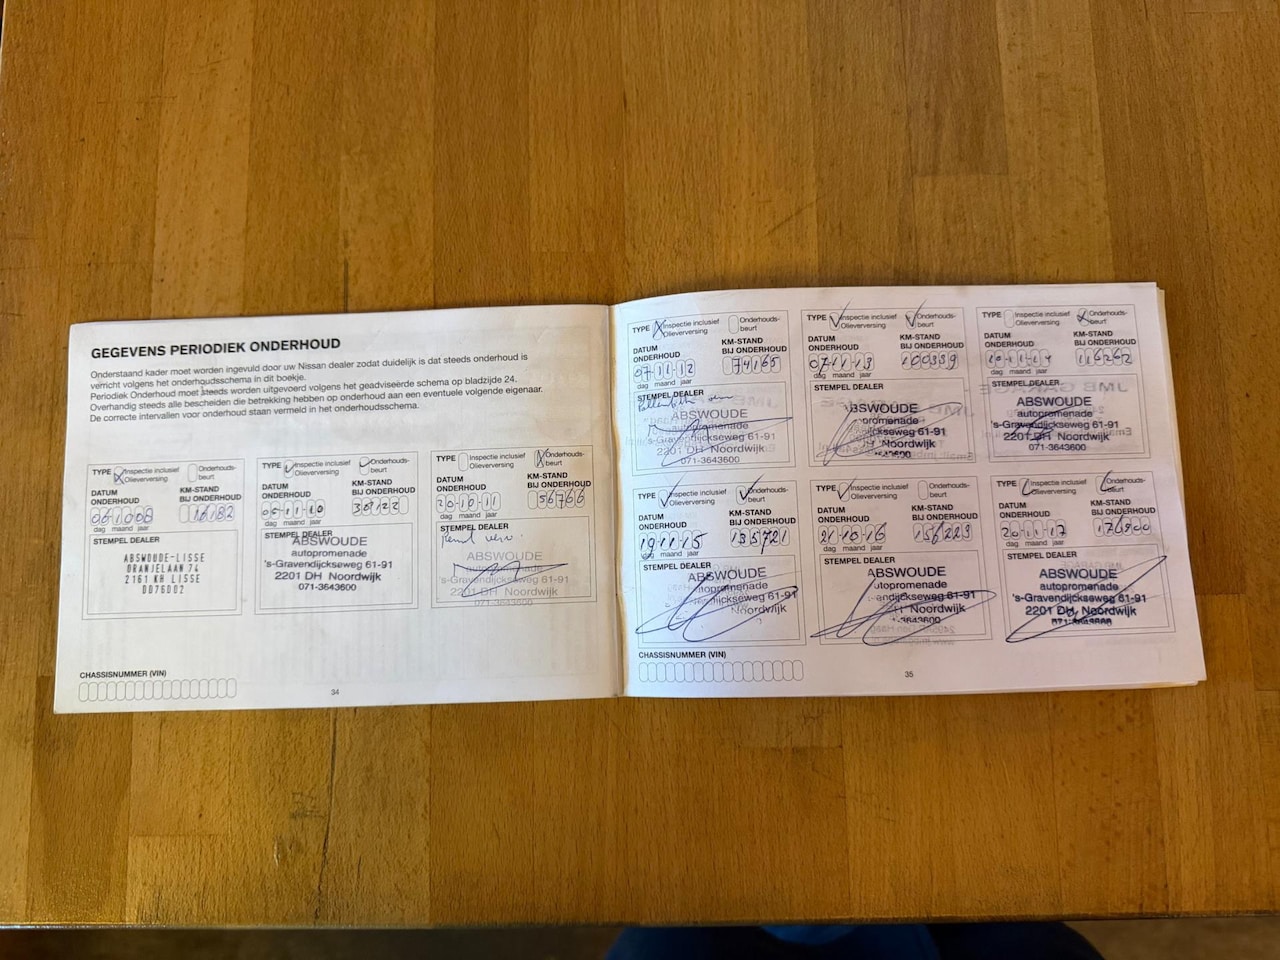 GEGEVENS PERIODIEK ONDERHOUD
Onderstaand kader moet worden ingevuld door uw Nissan dealer zodat duidelijk is dat steeds onderhoud is
verricht volgens het onderhoudsschema in dit boekje.
Periodiek Onderhoud moet steeds worden uitgevoerd volgens het geadviseerde schema op bladzijde 24.
Overhandig steeds alle bescheiden die betrekking hebben op onderhoud aan een eventuele volgende eigenaar.
De correcte intervallen voor onderhoud staan vermeld in het onderhoudsschema.
TYPE X Inspectie inclusief Olieverversing Onderhouds-beurt
DATUM ONDERHOUD KM-STAND BIJ ONDERHOUD
061008 16182
dag maand jaar
STEMPEL DEALER
ABSWOUDE-LISSE
ORANJELAAN 74
2161 KH LISSE
DD76D02
TYPE Inspectie inclusief Olieverversing Onderhouds-beurt
DATUM ONDERHOUD KM-STAND BIJ ONDERHOUD
11-10
dag maand jaar
STEMPEL DEALER
ABSWOUDE
autopromenade
's-Gravendijckseweg 61-91
2201 DH Noordwijk
071-3643600
TYPE Inspectie inclusief Olieverversing X Onderhouds-beurt
DATUM ONDERHOUD KM-STAND BIJ ONDERHOUD
20-10-11 56766
dag maand jaar
STEMPEL DEALER
ABSWOUDE
autopromenade
's-Gravendijckseweg 61-91
2201 DH Noordwijk
071-3643600
CHASSISNUMMER (VIN)
34
TYPE X Inspectie inclusief Olieverversing Onderhouds-beurt
DATUM ONDERHOUD KM-STAND BIJ ONDERHOUD
07-11-12 74165
dag maand jaar
STEMPEL DEALER
ABSWOUDE
autopromenade
's-Gravendijckseweg 61-91
2201 DH Noordwijk
071-3643600
TYPE Inspectie inclusief Olieverversing Onderhouds-beurt
DATUM ONDERHOUD KM-STAND BIJ ONDERHOUD
07-11-13 100339
dag maand jaar
STEMPEL DEALER
ABSWOUDE
autopromenade
61-91
Noordwijk
TYPE Inspectie inclusief Olieverversing X Onderhouds-beurt
DATUM ONDERHOUD KM-STAND BIJ ONDERHOUD
10-11-14 116262
dag maand jaar
STEMPEL DEALER
ABSWOUDE
autopromenade
's-Gravendijckseweg 61-91
2201 DH Noordwijk
071-3643600
TYPE Inspectie inclusief Olieverversing Onderhouds-beurt
DATUM ONDERHOUD KM-STAND BIJ ONDERHOUD
19-11-15 135721
dag maand jaar
STEMPEL DEALER
ABSWOUDE
autopromenade
61-91
Noordwijk
TYPE Inspectie inclusief Olieverversing Onderhouds-beurt
DATUM ONDERHOUD KM-STAND BIJ ONDERHOUD
21-10-16 156223
dag maand jaar
STEMPEL DEALER
ABSWOUDE
autopromenade
61-91
Noordwijk
TYPE Inspectie inclusief Olieverversing Onderhouds-beurt
DATUM ONDERHOUD KM-STAND BIJ ONDERHOUD
20-11-17 176900
dag maand jaar
STEMPEL DEALER
ABSWOUDE
autopromenade
's-Gravendijckseweg 61-91
2201 DH Noordwijk
CHASSISNUMMER (VIN)
35